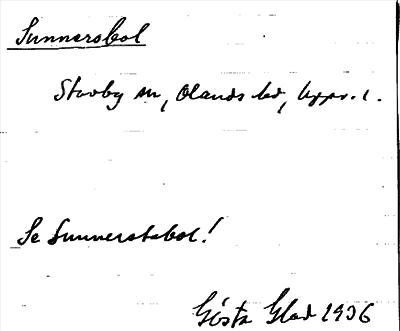 Sunnersbol
Stavby sn, Olands hd, Upps. l.
Se Sunnerstabol!
Gösta Glad 1936